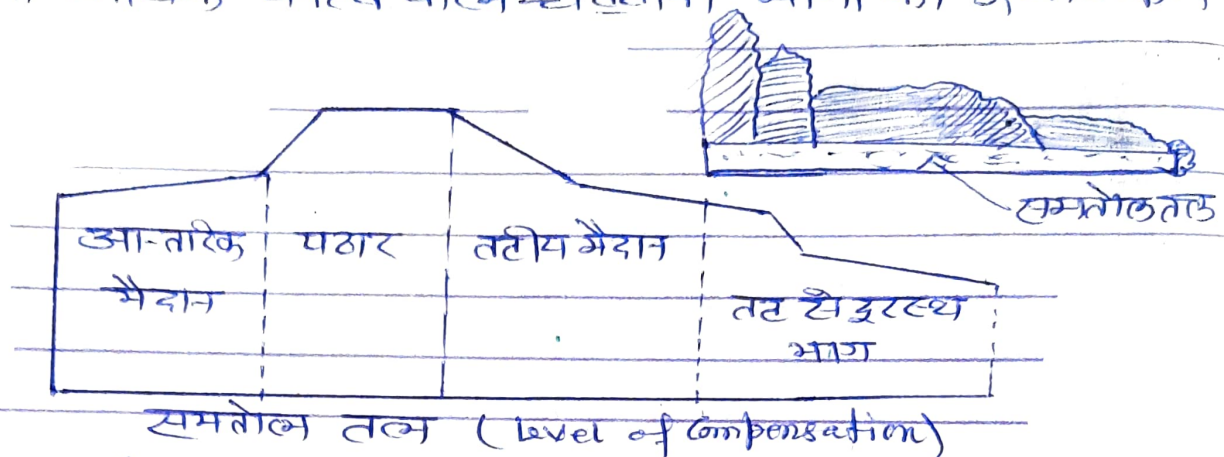 समतोल तल
आन्तरिक पठार तटीय मैदान
मैदान
तट से दूरस्थ
भाग
समतोल तल (Level of Compensation)